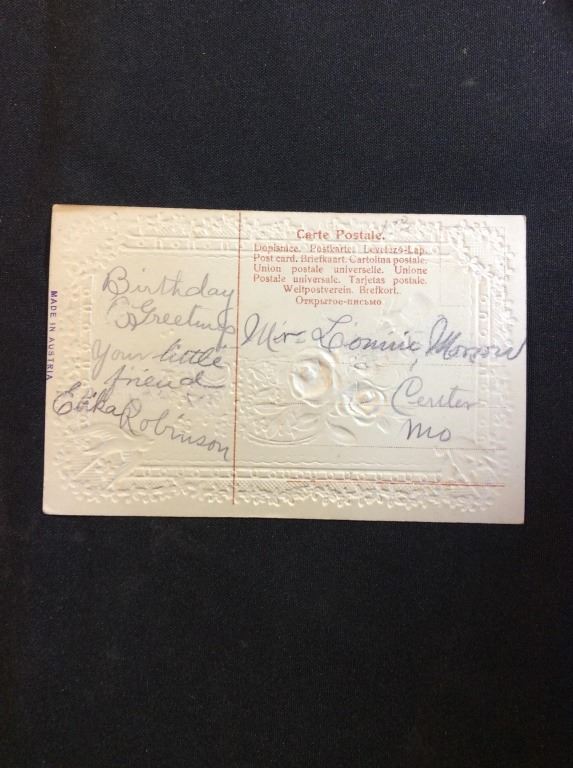 Carte Postale.
Dopisnice. Postkarte. Levelező-Lap.
Post card. Briefkaart. Cartolina postale.
Union postale universelle. Unione
Postale universale. Tarjetas postale.
Weltpostverein. Brefkort.
Открытое-письмо
MADE IN AUSTRIA
Birthday
Greetings
Your little
friend
Erika Robinson
Mr. Lonnie
Center
Mo